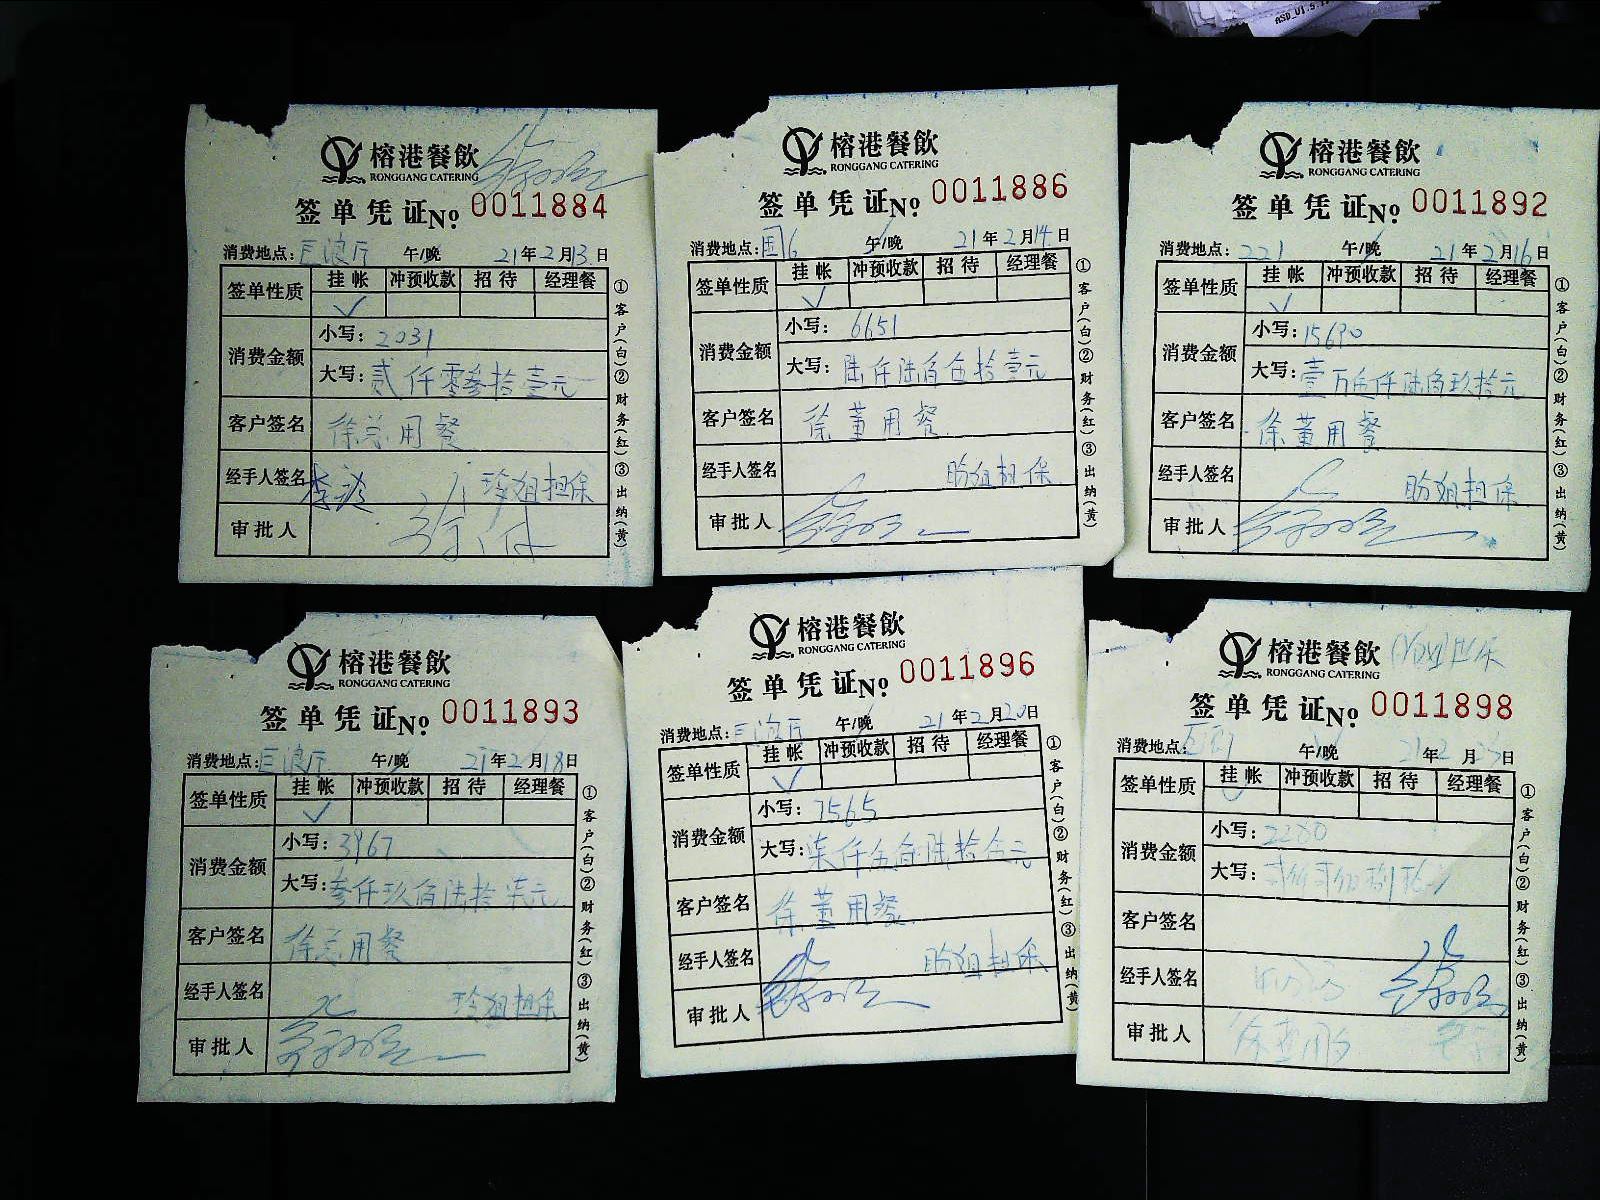 ASD_V1.5.1
榕港餐飲
RONGGANG CATERING
签单凭证No. 0011884
消费地点: 巨浪厅 午/晚 21年2月13日
签单性质 挂帐 冲预收款 招待 经理餐
✓
消费金额 小写: 2031
大写: 贰仟零叁拾壹元
客户签名 徐总用餐
经手人签名 玲姐担保
审批人
①客户(白)②财务(红)③出纳(黄)
榕港餐飲
RONGGANG CATERING
签单凭证No. 0011886
消费地点: 国6 午/晚 21年2月14日
签单性质 挂帐 冲预收款 招待 经理餐
✓
消费金额 小写: 6651
大写: 陆仟陆佰伍拾壹元
客户签名 徐董用餐
经手人签名 盼姐担保
审批人
①客户(白)②财务(红)③出纳(黄)
榕港餐飲
RONGGANG CATERING
签单凭证No. 0011892
消费地点: 221 午/晚 21年2月16日
签单性质 挂帐 冲预收款 招待 经理餐
✓
消费金额 小写: 15690
大写: 壹万伍仟陆佰玖拾元
客户签名 徐董用餐
经手人签名 盼姐担保
审批人
①客户(白)②财务(红)③出纳(黄)
榕港餐飲
RONGGANG CATERING
签单凭证No. 0011893
消费地点: 巨浪厅 午/晚 21年2月18日
签单性质 挂帐 冲预收款 招待 经理餐
✓
消费金额 小写: 3967
大写: 叁仟玖佰陆拾柒元
客户签名 徐总用餐
经手人签名 玲姐担保
审批人
①客户(白)②财务(红)③出纳(黄)
榕港餐飲
RONGGANG CATERING
签单凭证No. 0011896
消费地点: 巨浪厅 午/晚 21年2月20日
签单性质 挂帐 冲预收款 招待 经理餐
✓
消费金额 小写: 7565
大写: 柒仟伍佰陆拾伍元
客户签名 徐董用餐
经手人签名 盼姐担保
审批人
①客户(白)②财务(红)③出纳(黄)
榕港餐飲
RONGGANG CATERING
签单凭证No. 0011898
消费地点: 午/晚 21年2月 日
签单性质 挂帐 冲预收款 招待 经理餐
消费金额 小写: 2280
大写: 贰仟贰佰捌拾
客户签名
经手人签名
审批人
①客户(白)②财务(红)③出纳(黄)